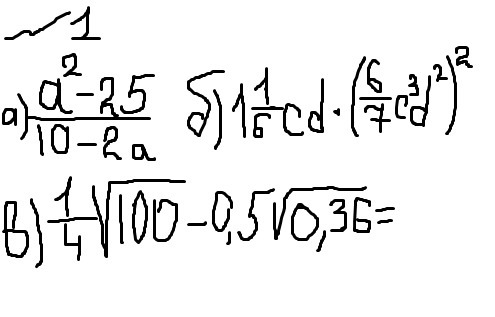 №1
а) (a² - 25)/(10 - 2a) б) 1 1/6 cd · (6/7 c³d²)²
в) 1/4 √100 - 0,5√0,36 =